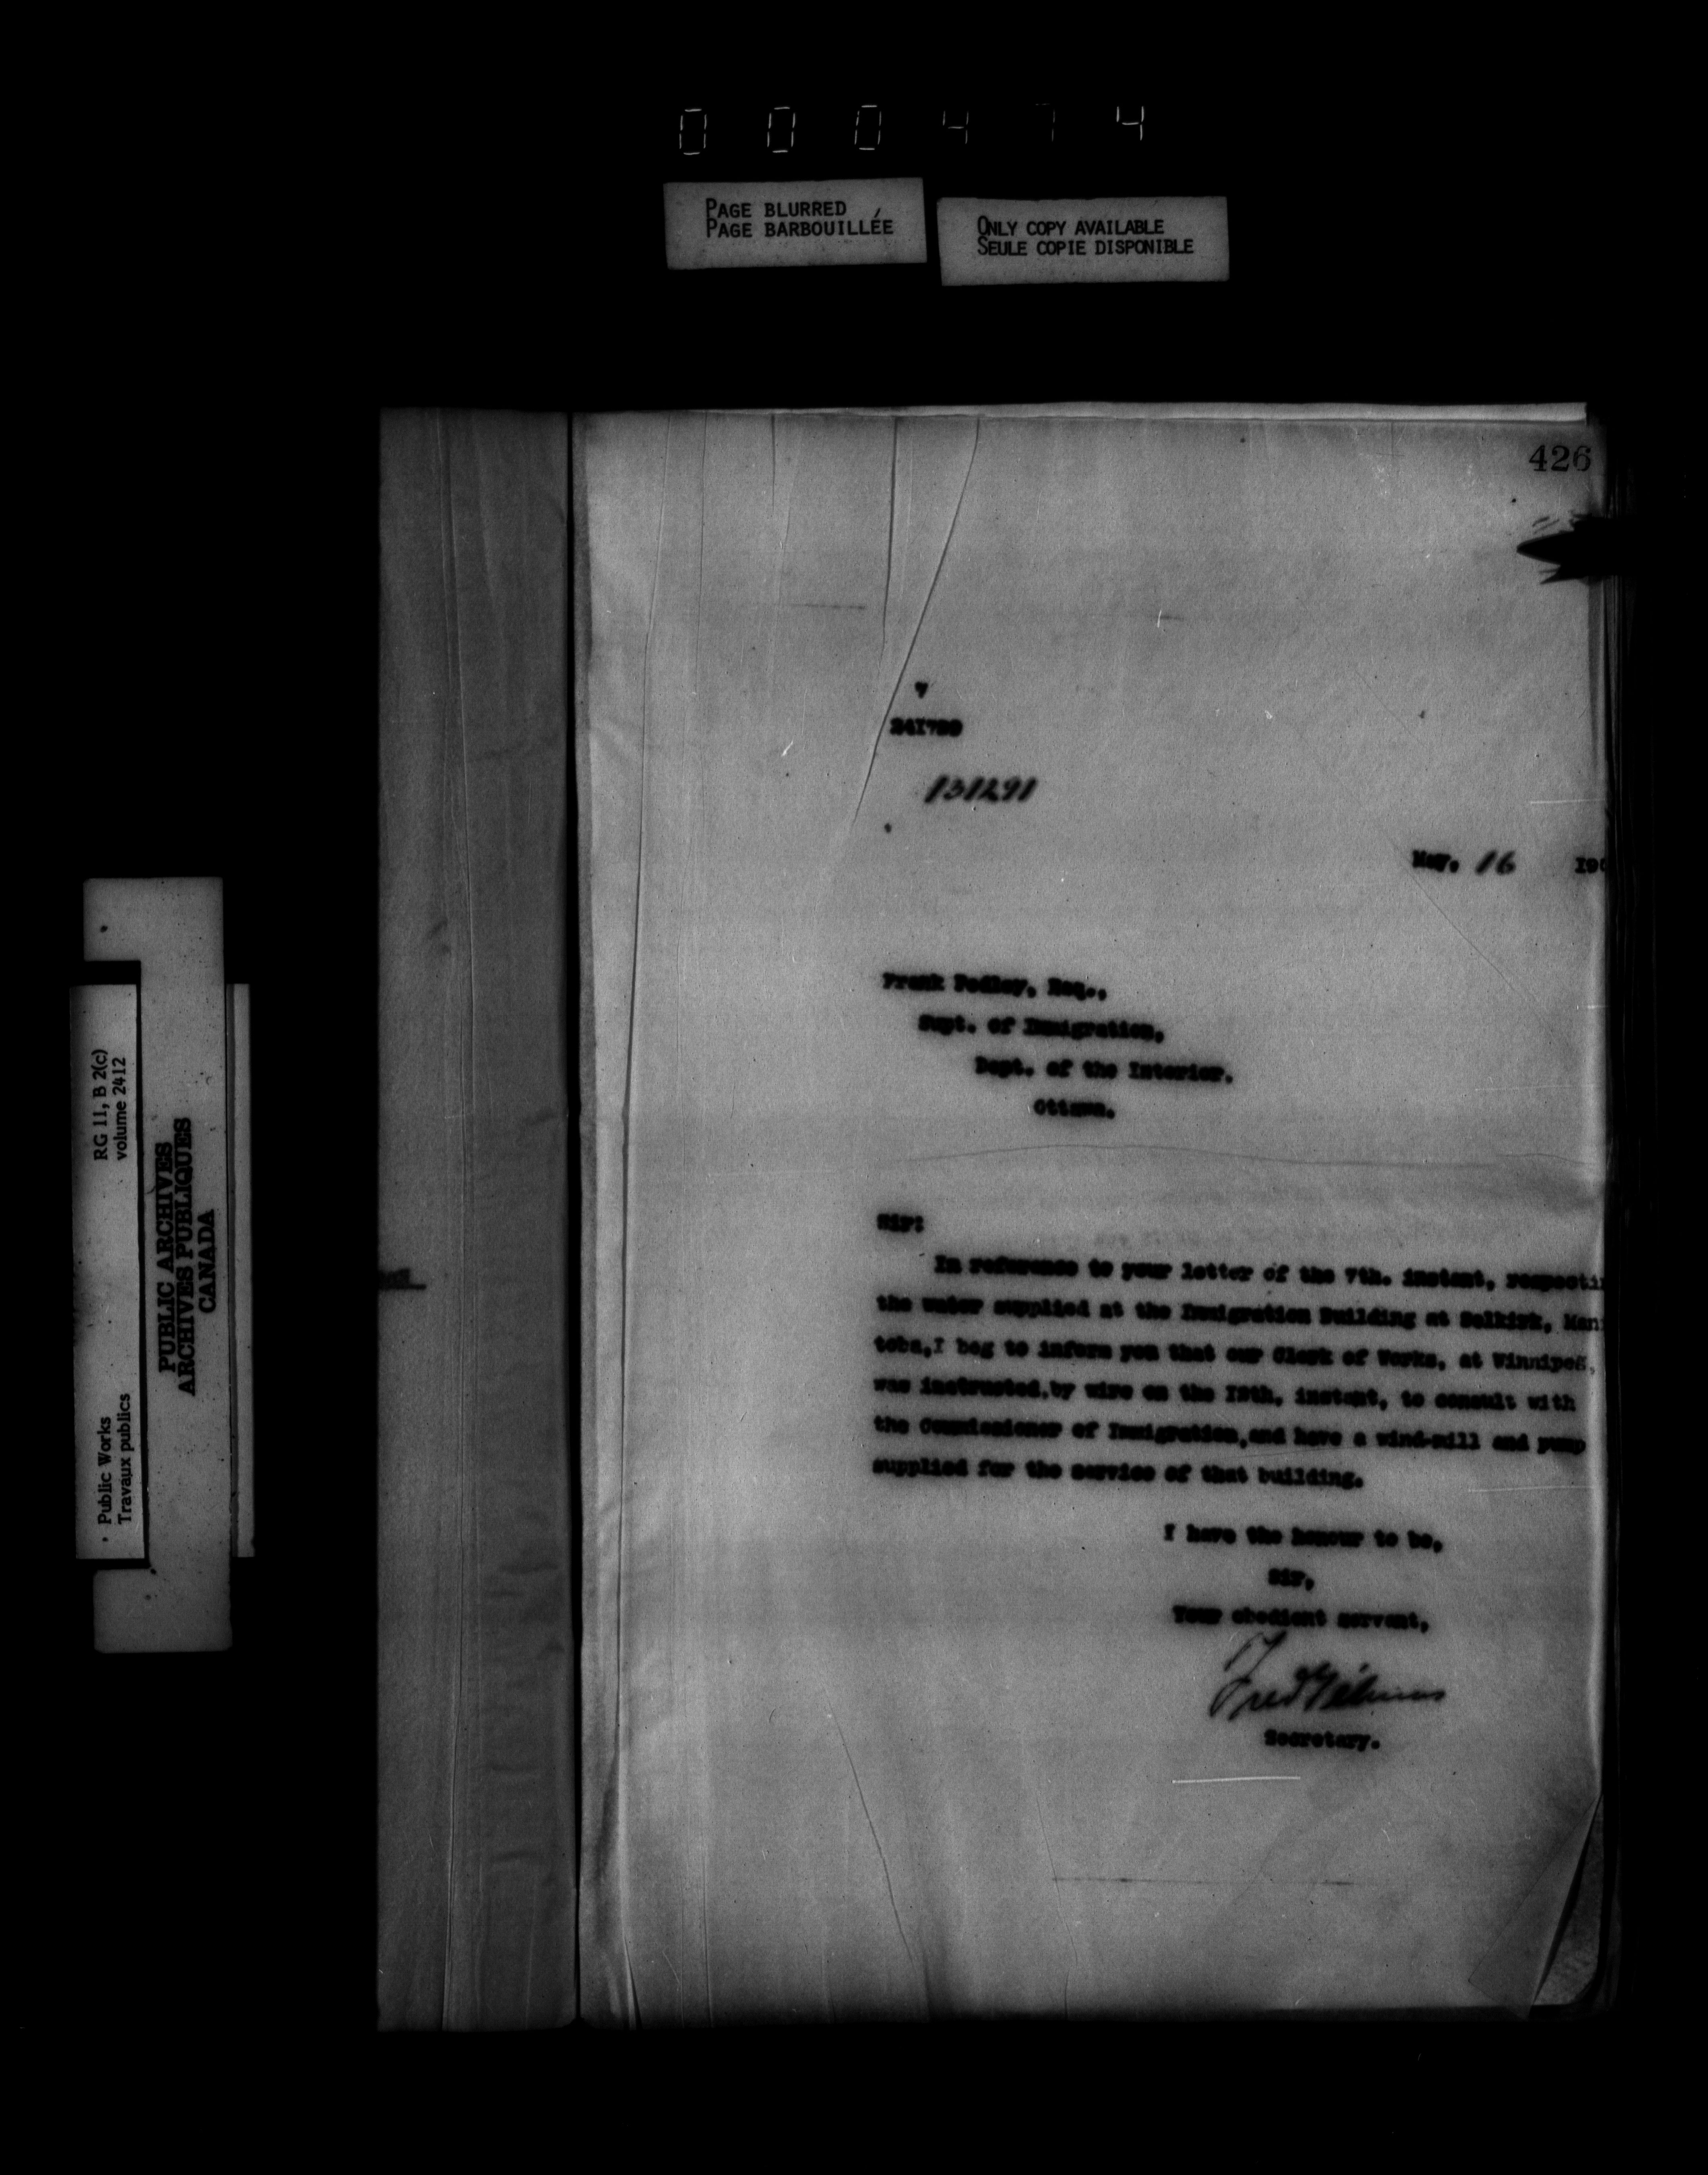 000474
PAGE BLURRED
PAGE BARBOUILLÉE
ONLY COPY AVAILABLE
SEULE COPIE DISPONIBLE
426
7
131291
May. 16 190
Frank Pedley, Esq.,
Supt. of Immigration,
Dept. of the Interior.
Ottawa.
Sir:
In reference to your letter of the 7th. instant, respectin
the water supplied at the Immigration Building at Selkirk, Mani
toba,I beg to inform you that our Clerk of Works, at Winnipeg,
was instructed,by wire on the instant, to consult with
the Commissioner of Immigration,and have a wind-mill and pump
supplied for the service of that building.
I have the honour to be,
Sir,
Your obedient servant,
Fred Gélinas
Secretary.
RG 11, B 2(c)
volume 2412
Public Works
Travaux publics
PUBLIC ARCHIVES
ARCHIVES PUBLIQUES
CANADA